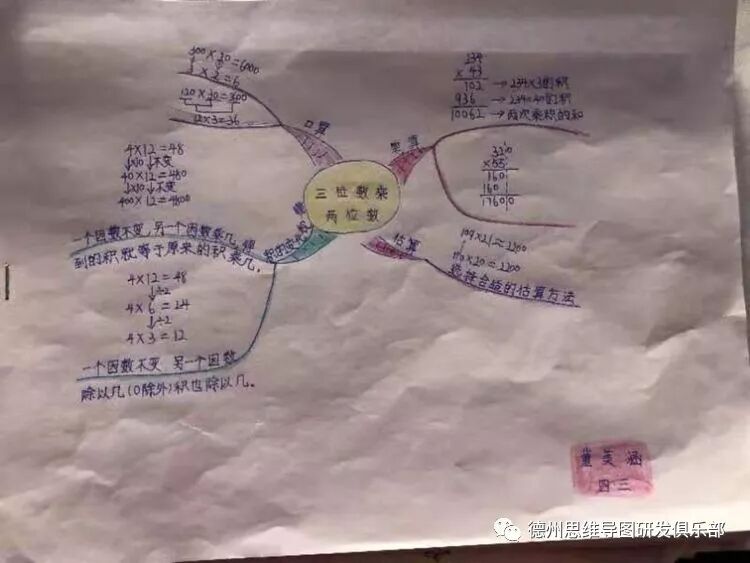 三位数乘
两位数
口算
300×20=6000
3×2=6
120×30=300
12×3=36
笔算
234
×43
102→234×3的积
936→234×40的积
10062→两次乘积的和
320
×55
160
160
17600
估算
109×21≈2200
110×20=2200
选择合适的估算方法
积的变化规律
4×12=48
↓×10↓不变
40×12=480
↓×10↓不变
400×12=4800
一个因数不变,另一个因数乘几,得
到的积就等于原来的积乘几。
4×12=48
↓÷2
4×6=24
↓÷2
4×3=12
一个因数不变 另一个因数
除以几(0除外)积也除以几。
美涵
四三
德州思维导图研发俱乐部